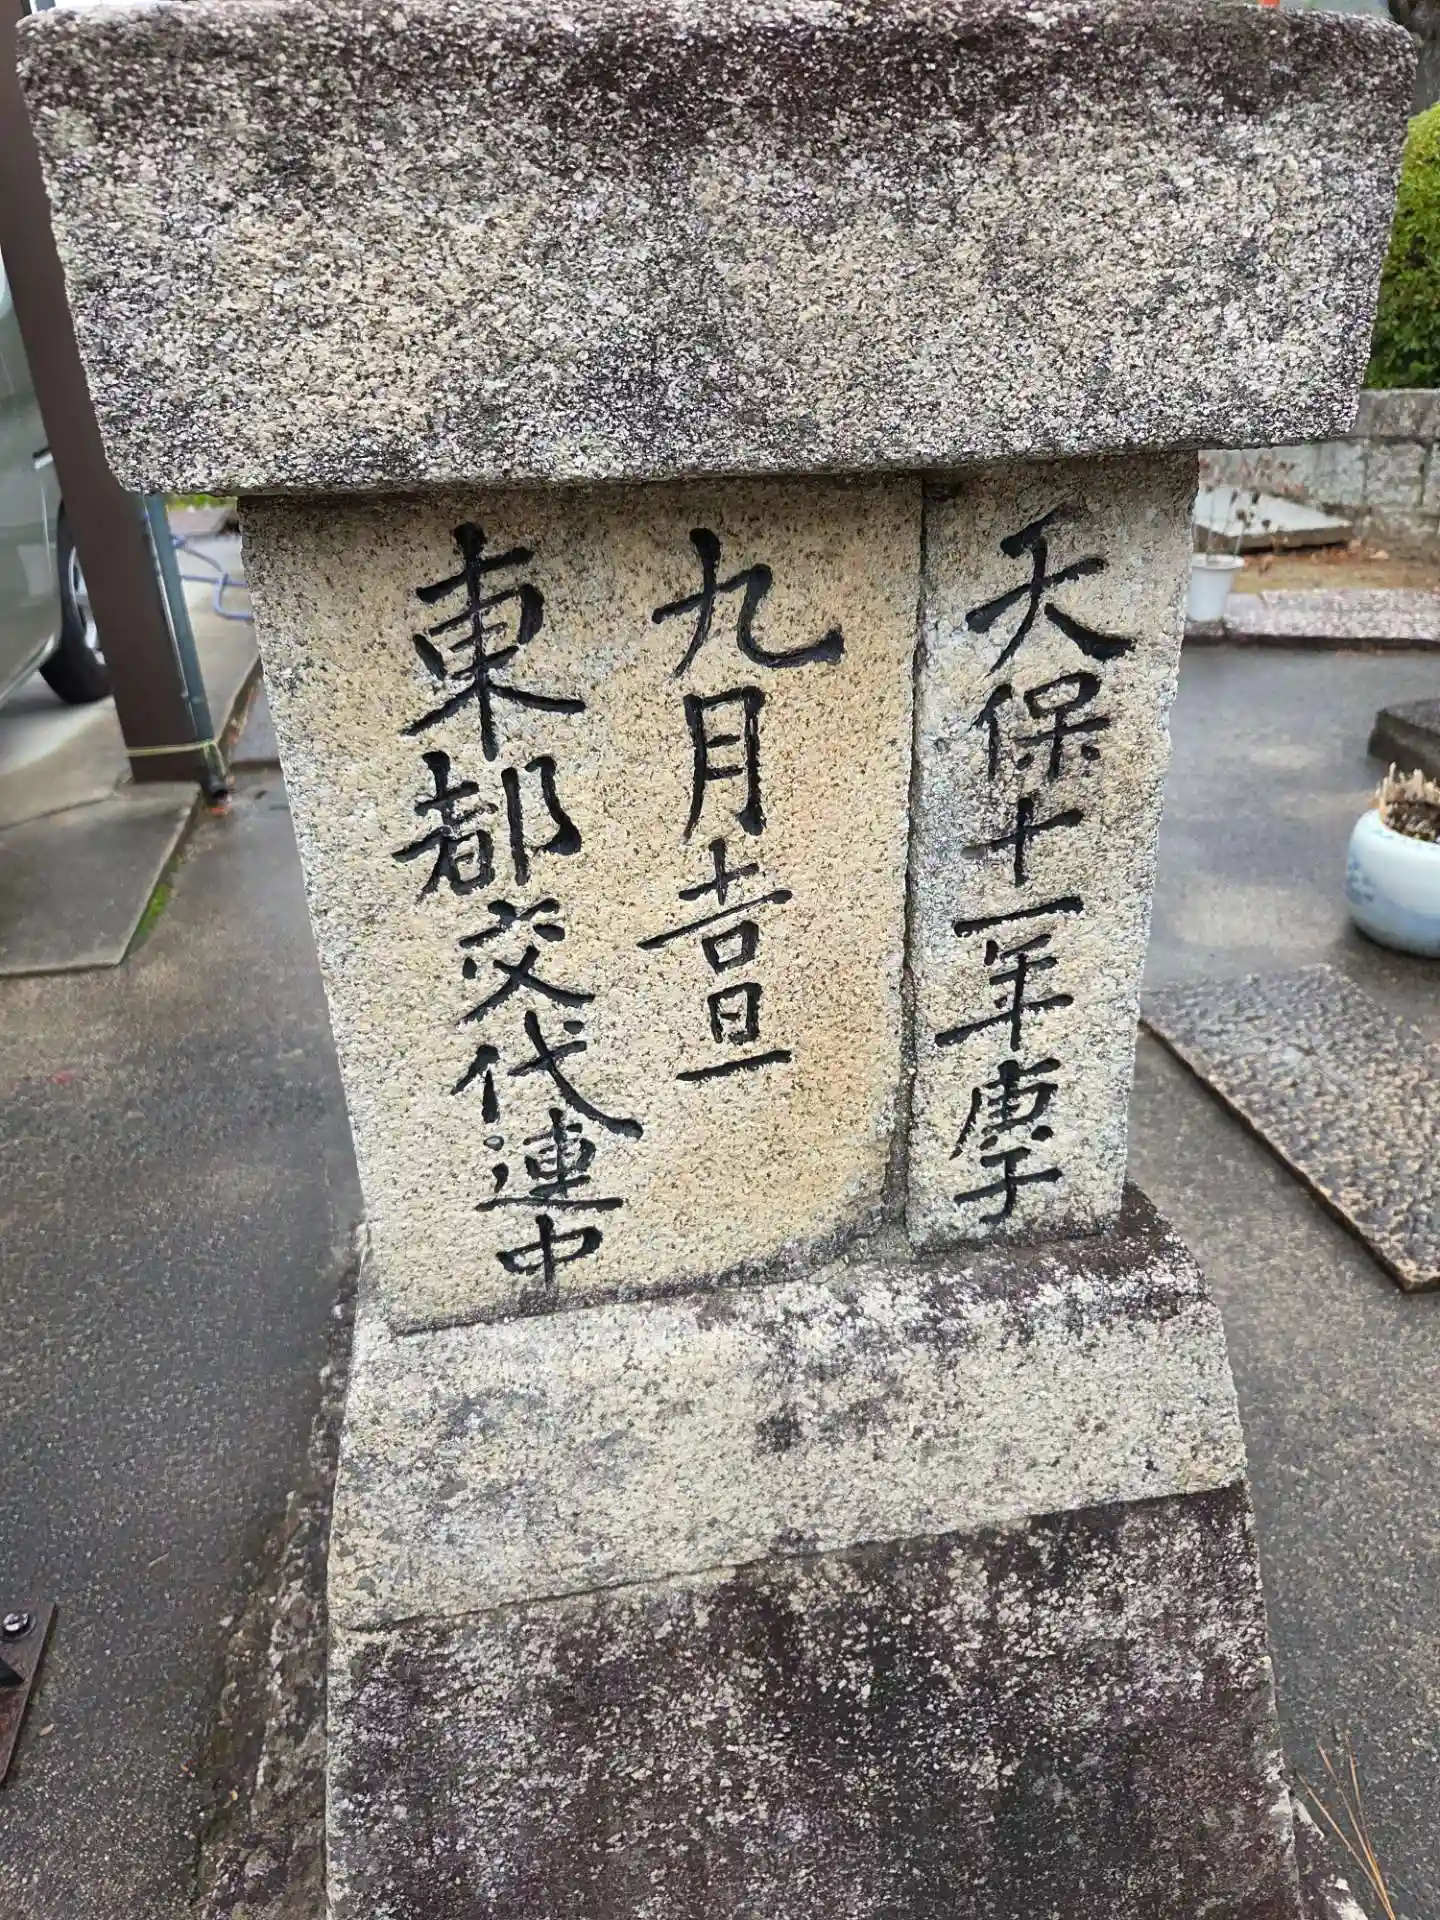 天保十一年庚子
九月吉旦
東都交代連中